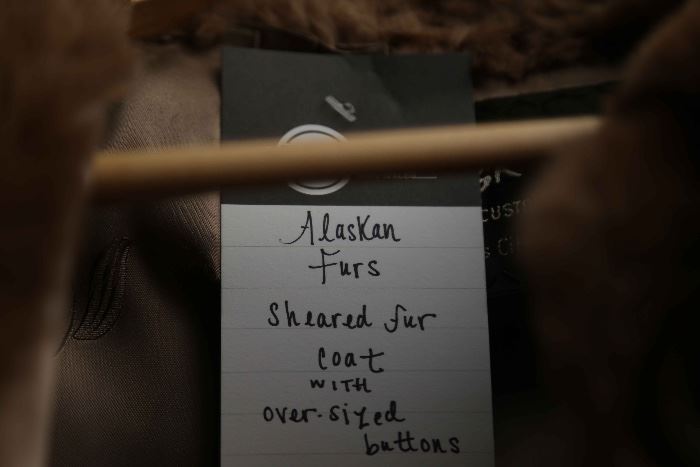 Alaskan
Furs
Sheared fur
coat
with
over-sized
buttons